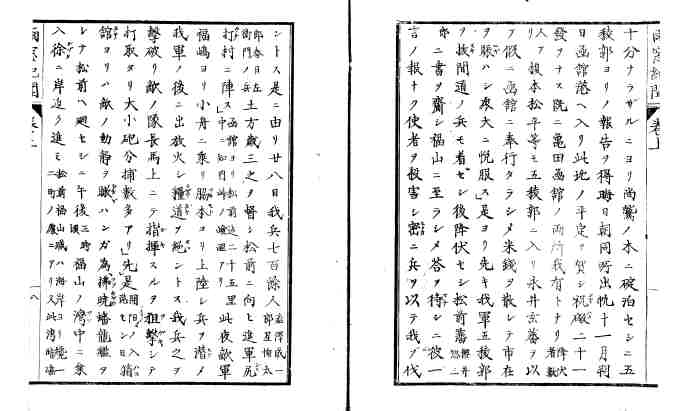 十分ナラザルニヨリ尚鷲ノ木ニ碇泊セシニ五
稜郭ヨリノ報告ヲ得晦日朝同所出帆十一月朔
日函館港ヘ入リ此地ノ平定ヲ賀シ祝砲二十一
發ヲナス既ニ亀田函館ノ両所我有トナリ降伏者數
人ア榎本松平等モ五稜郭ニ入リ永井玄蕃ヲ以
テ假ニ函館ニ奉行タラシメ米錢ヲ散シテ市在
ヲ賑ハシ衆大ニ悦服ス是ヨリ先キ我軍五稜郭
ヲ抜間道ノ兵モ着セシ後降伏セシ松前藩
郎ニ書ヲ齎シ福山ニ至ラシメ答ヲ待シニ彼一
言ノ報ナク使者ヲ殺害シ密ニ兵ヲ以テ我ヲ伐
ントス是ニ由リ廿八日我兵七百餘人
土方歳三之ヲ督シ松前ニ向ヒ進軍尻
打村ニ陣ス函館ヨリ松前迄二十五里此夜敵軍
福嶋ヨリ小舟ニ乗リ脇本ヨリ上陸シ兵ヲ潜メ
我軍ノ後ニ出放火シ糧道ヲ絶ントス我兵之ヲ
撃破リ敵ノ隊長馬上ニテ指揮スルヲ狙撃シテ
打取タリ大小砲分捕數多アリ先是
館ヨリハ敵ノ動静ヲ瞰ハンガ為拂暁蟠龍艦ヲ
シテ松前ヘ廻セシニ午後三時頃福山ノ湾中ニ乗
入徐ニ岸近ク進ミ松前福山城ハ海岸ヨリ